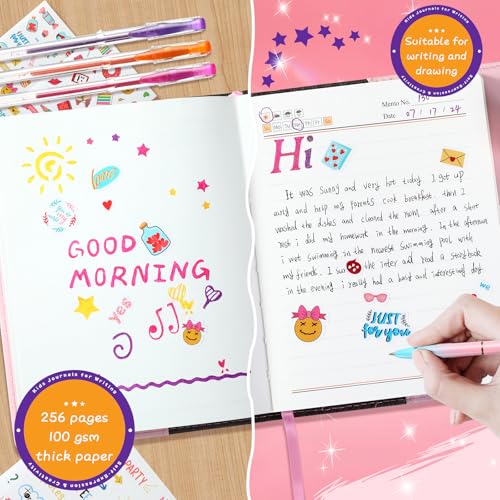 Kids Journals for Writing
Suitable for
writing and
drawing
Self-Expression & Creativity
Memo No. 136
Date 07 / 17 / 24
Mo Tu We Th Fr
Hi
It was sunny and very hot today. I got up
early and help my parents cook breakfast. then I
washed the dishes and cleaned the room, after a short
rest i did my homework in the morning. In the afternoon
i went swimming in the nearest swimming pool with
my friends. I the inter and read a storybook
in the evening. i really had a busy and interesting day.
we
JUST
for you
GOOD
MORNING
Yes
Kids Journals for Writing
256 pages
100 gsm
thick paper
Self-Expression & Creativity
PARTY